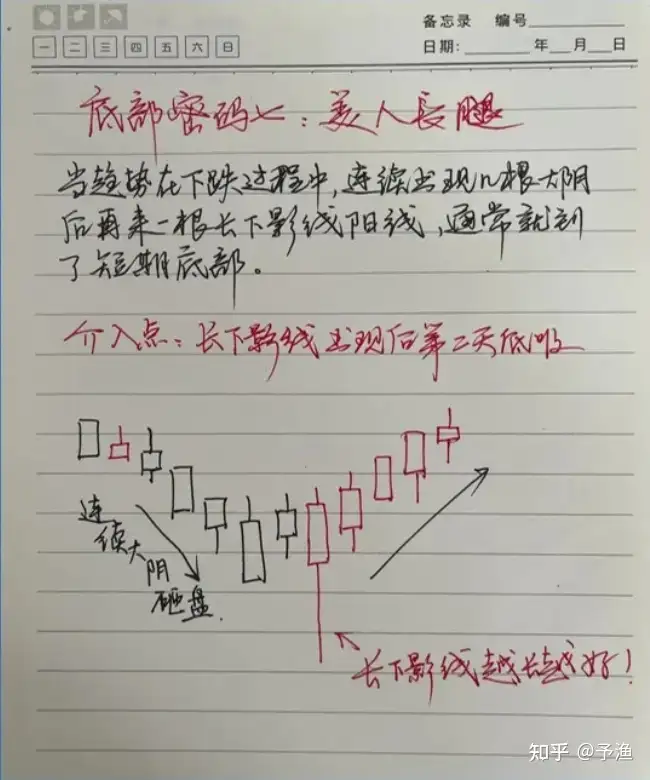 备忘录 编号
日期: 年 月 日
一 二 三 四 五 六 日
底部密码七：美人长腿
当趋势在下跌过程中，连续出现几根大阴
后再来一根长下影线阳线，通常就到
了短期底部。
介入点：长下影线出现后第二天低吸
连续大阴砸盘
长下影线越长越好！
知乎 @予渔